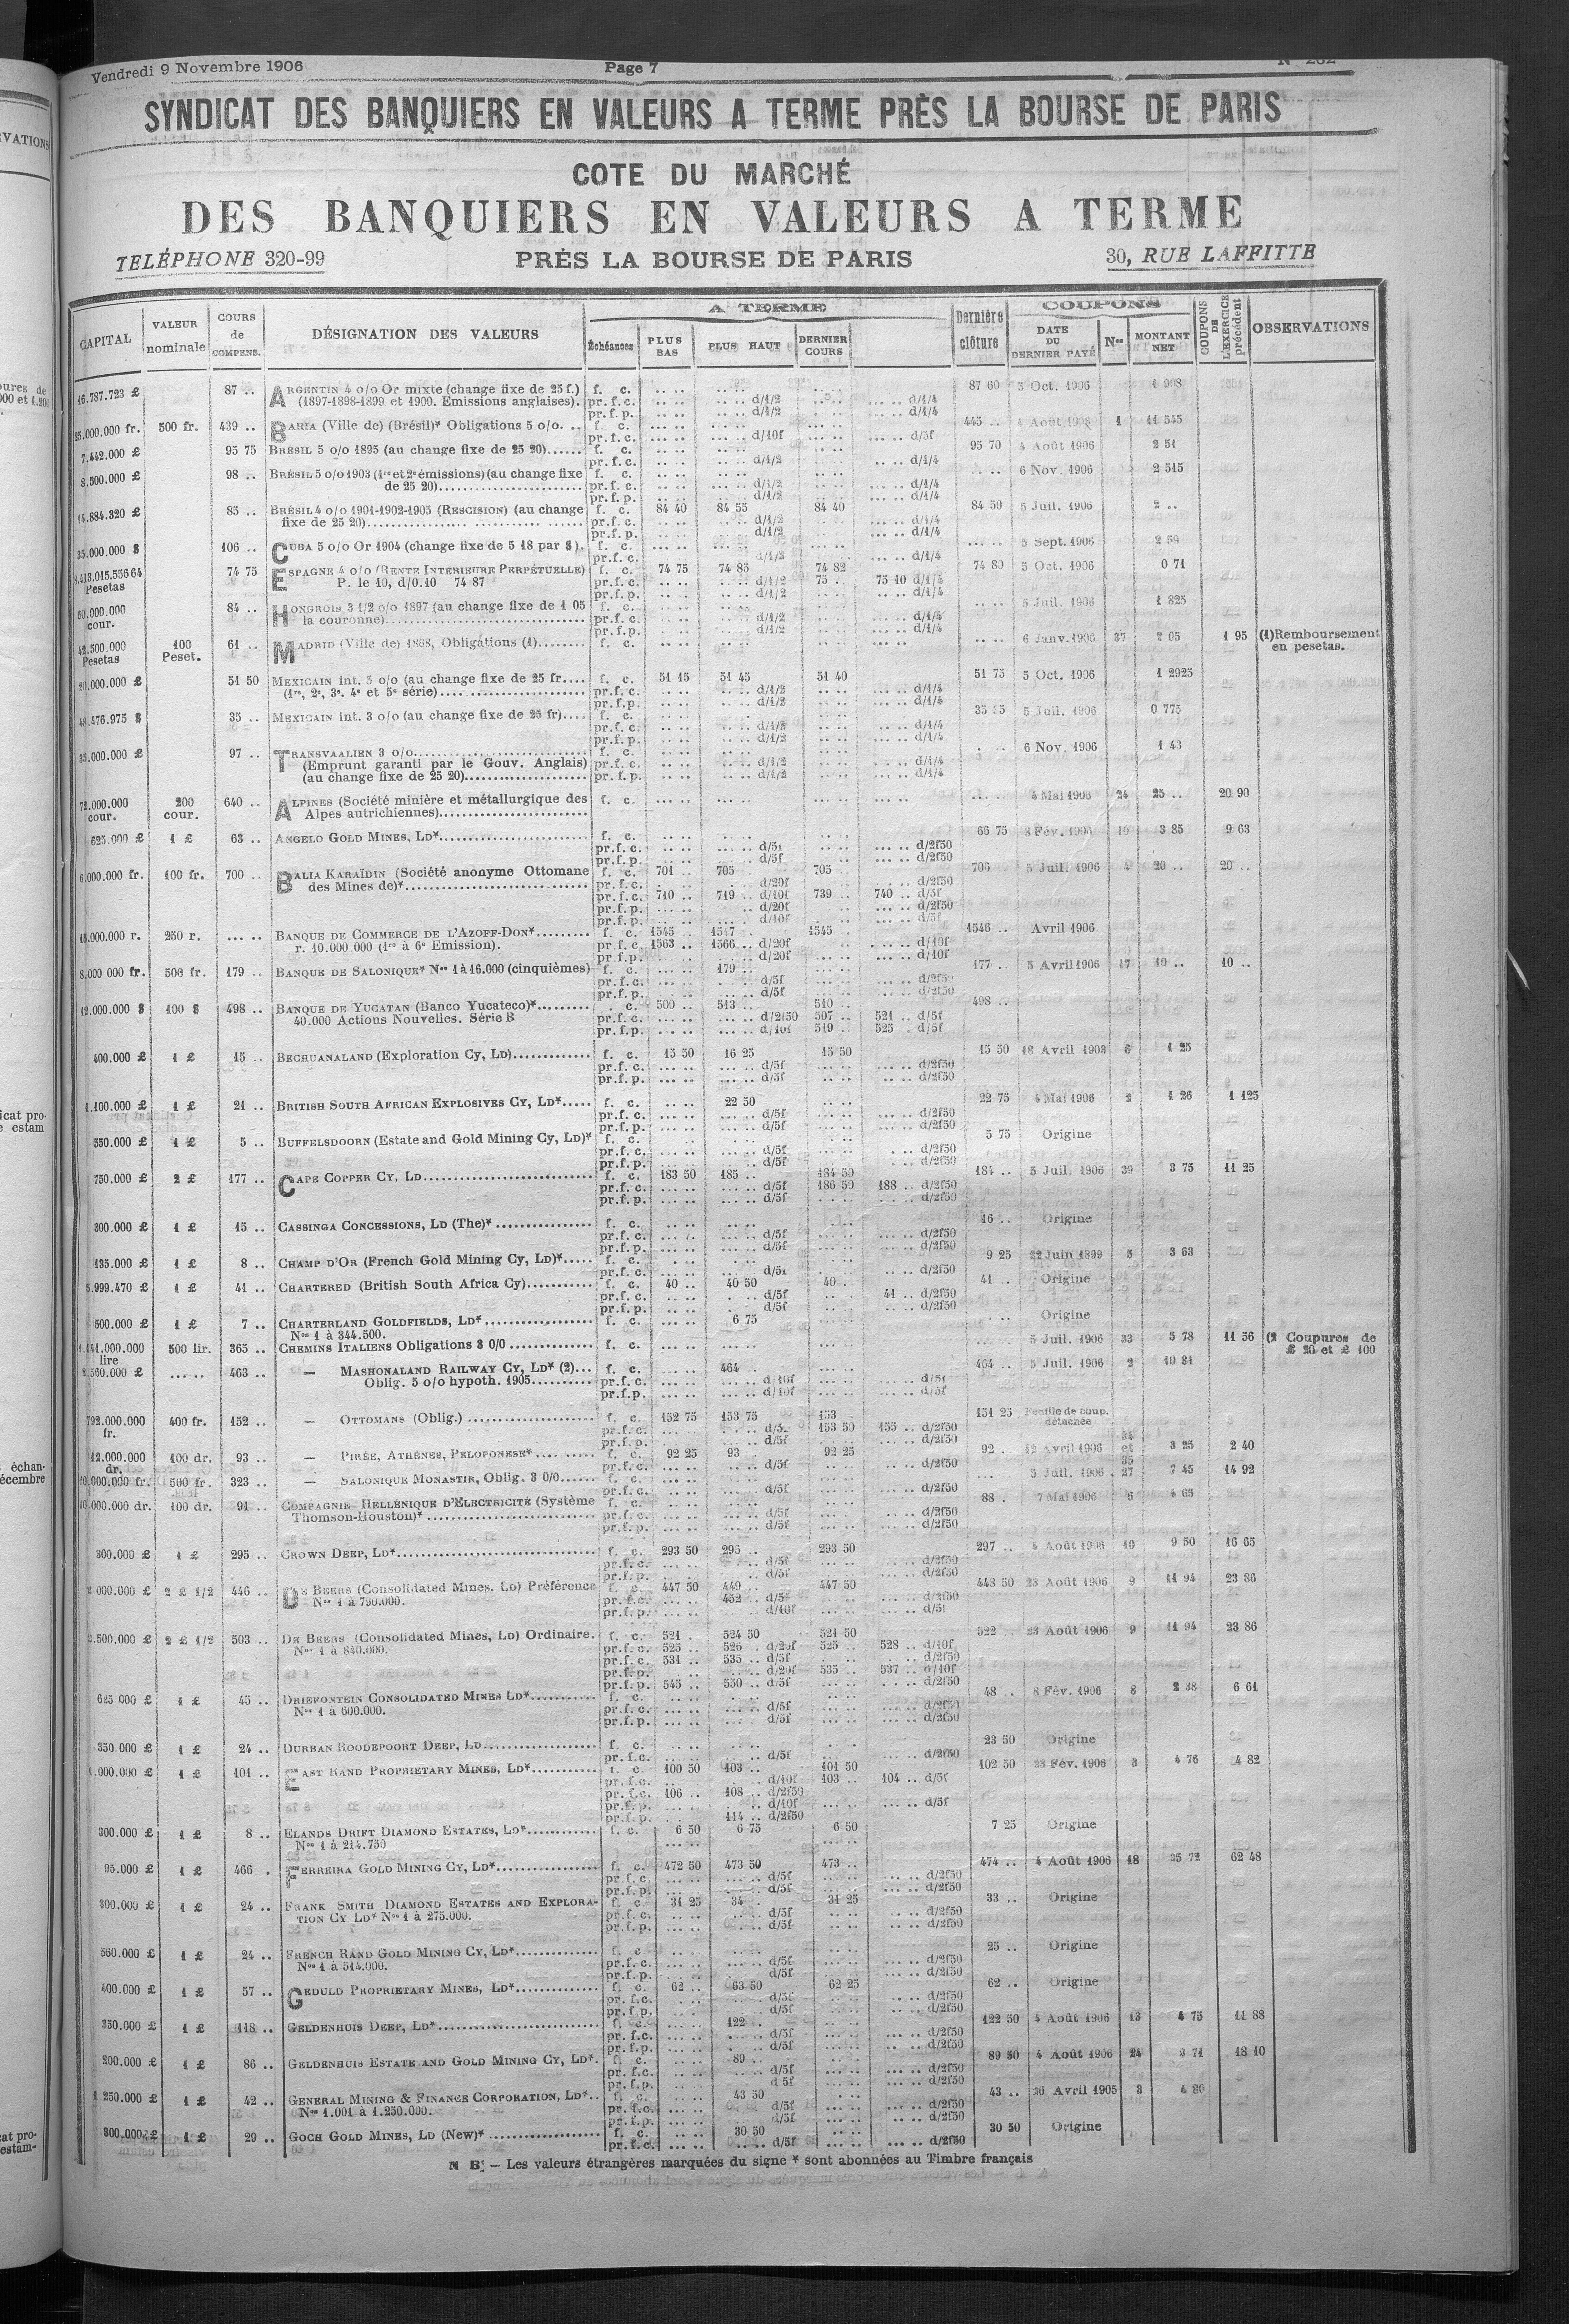 Vendredi 9 Novembre 1906 Page 7
SYNDICAT DES BANQUIERS EN VALEURS A TERME PRÈS LA BOURSE DE PARIS
COTE DU MARCHÉ
DES BANQUIERS EN VALEURS A TERME
TELÉPHONE 320-99 PRÈS LA BOURSE DE PARIS 30, RUE LAFFITTE
CAPITAL VALEUR nominale COURS de COMPENS. DÉSIGNATION DES VALEURS A TERME Échéances PLUS BAS PLUS HAUT DERNIER COURS Dernière clôture COUPONS DATE DU DERNIER PAYÉ Nos MONTANT NET COUPONS DE L'EXERCICE précédent OBSERVATIONS
16.787.723 £ 87 .. ARGENTIN 4 o/o Or mixte (change fixe de 25 f.) f. c. 87 60 5 Oct. 1906 1 908
(1897-1898-1899 et 1900. Emissions anglaises). pr. f. c. d/1/2 d/1/4
pr. f. p. d/1/2 d/1/4
25.000.000 fr. 500 fr. 439 .. BAHIA (Ville de) (Brésil)* Obligations 5 o/o. .. f. c. 445 .. 4 Août 1 11 545
pr. f. c. d/10f d/5f
7.442.000 £ 95 75 BRESIL 5 o/o 1895 (au change fixe de 25 20)...... f. c. 95 70 4 Août 1906 2 51
pr. f. c. d/1/2 d/1/4
8.500.000 £ 98 .. BRÉSIL 5 o/o 1903 (1re et 2e émissions) (au change fixe f. c. 6 Nov. 1906 2 515
de 25 20)........ pr. f. c. d/1/2 d/1/4
pr. f. p. d/1/2 d/1/4
14.884.320 £ 85 .. BRÉSIL 4 o/o 1901-1902-1905 (RESCISION) (au change f. c. 84 40 84 55 84 40 84 50 5 Juil. 1906 2 ..
fixe de 25 20)........ pr. f. c. d/1/2 d/1/4
pr. f. p. d/1/2 d/1/4
35.000.000 $ 106 .. CUBA 5 o/o Or 1904 (change fixe de 5 18 par $). f. c. 5 Sept. 1906 2 59
pr. f. c. d/1/2 d/1/4
Pesetas 74 75 ESPAGNE 4 o/o (RENTE INTÉRIEURE PERPÉTUELLE) f. c. 74 75 74 85 74 82 74 80 5 Oct. 1906 0 71
P. le 10, d/0.10 74 87 pr. f. c. d/1/2 75 .. 75 10 d/1/4
pr. f. p. d/1/2 d/1/4
60.000.000 cour. 84 .. HONGROIS 3 1/2 o/o 1897 (au change fixe de 1 05 f. c. 5 Juil. 1906 1 825
la couronne)........ pr. f. c. d/1/2 d/1/4
pr. f. p. d/1/2 d/1/4
42.500.000 Pesetas 100 Peset. 61 .. MADRID (Ville de) 1868, Obligations (1)........ f. c. 6 Janv. 1906 37 2 05 1 95 (1) Remboursement en pesetas.
20.000.000 £ 51 50 MEXICAIN int. 5 o/o (au change fixe de 25 fr.... f. c. 51 15 51 45 51 40 51 75 5 Oct. 1906 1 2925
(1re, 2e, 3e, 4e et 5e série)........ pr. f. c. d/1/2 d/1/4
pr. f. p. d/1/2 d/1/4
48.476.975 $ 35 .. MEXICAIN int. 3 o/o (au change fixe de 25 fr).... f. c. 5 Juil. 1906 0 775
pr. f. c. d/1/2 d/1/4
pr. f. p. d/1/2 d/1/4
35.000.000 £ 97 .. TRANSVAALIEN 3 o/o........ f. c. 6 Nov. 1906 1 43
(Emprunt garanti par le Gouv. Anglais) pr. f. c. d/1/2 d/1/4
(au change fixe de 25 20)........ pr. f. p. d/1/2 d/1/4
72.000.000 cour. 200 cour. 640 .. ALPINES (Société minière et métallurgique des f. c. 4 Mai 1906 24 25 .. 20 90
Alpes autrichiennes)........
625.000 £ 1 £ 63 .. ANGELO GOLD MINES, LD*........ f. c. 66 75 8 Fév. 1906 10 3 85 9 63
pr. f. c. d/5f d/2f50
pr. f. p. d/5f d/2f50
6.000.000 fr. 100 fr. 700 .. BALIA KARAÏDIN (Société anonyme Ottomane f. c. 701 .. 705 705 .. 706 5 Juil. 1906 4 20 .. 20 ..
des Mines de)*........ pr. f. c. d/20f d/2f50
pr. f. c. 710 .. 719 .. d/10f 739 740 .. d/5f
pr. f. p. d/20f d/2f50
pr. f. p. d/10f d/5f
18.000.000 r. 250 r. BANQUE DE COMMERCE DE L'AZOFF-DON*........ f. c. 1545 .. 1547 1545 .. 1546 .. Avril 1906
r. 10.000.000 (1re à 6e Emission). pr. f. c. 1563 .. 1566 .. d/20f d/10f
pr. f. p. d/20f d/10f
8.000 000 fr. 500 fr. 179 .. BANQUE DE SALONIQUE* Nos 1 à 16.000 (cinquièmes) f. c. 179 .. 177 .. 5 Avril 1906 17 10 .. 10 ..
pr. f. c. d/5f d/2f50
pr. f. p. d/5f d/2f50
12.000.000 $ 100 $ 498 .. BANQUE DE YUCATAN (Banco Yucateco)*........ f. c. 500 .. 513 .. 510 .. 498 ..
40.000 Actions Nouvelles. Série B pr. f. c. d/2f50 507 .. 521 .. d/5f
pr. f. p. d/10f 519 .. 525 .. d/5f
400.000 £ 1 £ 15 .. BECHUANALAND (Exploration Cy, LD)........ f. c. 15 50 16 25 15 50 15 50 18 Avril 1903 6 1 25
pr. f. c. d/5f d/2f50
pr. f. p. d/5f d/2f50
1.100.000 £ 1 £ 21 .. BRITISH SOUTH AFRICAN EXPLOSIVES CY, LD*..... f. c. 22 50 22 75 4 Mai 1906 2 1 26 1 125
pr. f. c. d/5f d/2f50
pr. f. p. d/5f d/2f50
550.000 £ 1 £ 5 .. BUFFELSDOORN (Estate and Gold Mining Cy, LD)* f. c. 5 75 Origine
pr. f. c. d/5f d/2f50
pr. f. p. d/5f d/2f50
750.000 £ 2 £ 177 .. CAPE COPPER CY, LD........ f. c. 183 50 185 .. 184 50 184 .. 5 Juil. 1906 39 3 75 11 25
pr. f. c. d/5f 186 50 188 .. d/2f50
pr. f. p. d/5f d/2f50
300.000 £ 1 £ 15 .. CASSINGA CONCESSIONS, LD (The)*........ f. c. 16 .. Origine
pr. f. c. d/5f d/2f50
pr. f. p. d/5f d/2f50
135.000 £ 1 £ 8 .. CHAMP D'OR (French Gold Mining Cy, LD)*..... f. c. 9 25 22 Juin 1899 5 3 63
pr. f. c. d/5f d/2f50
5.999.470 £ 1 £ 41 .. CHARTERED (British South Africa Cy)........ f. c. 40 .. 40 50 40 .. 41 .. Origine
pr. f. c. d/5f 41 .. d/2f50
pr. f. p. d/5f d/2f50
500.000 £ 1 £ 7 .. CHARTERLAND GOLDFIELDS, LD*........ f. c. 6 75 Origine
Nos 1 à 344.500.
1.141.000.000 lire 500 lir. 365 .. CHEMINS ITALIENS Obligations 3 0/0........ f. c. 5 Juil. 1906 33 5 78 11 56 (2 Coupures de £ 20 et £ 100
2.560.000 £ 463 .. — MASHONALAND RAILWAY CY, LD* (2)... f. c. 464 . 464 .. 5 Juil. 1906 2 10 81
Oblig. 5 o/o hypoth. 1905........ pr. f. c. d/10f d/5f
pr. f. p. d/10f d/5f
792.000.000 fr. 400 fr. 152 .. — OTTOMANS (Oblig.)........ f. c. 152 75 153 75 153 151 25 Feuille de coup. détachée
pr. f. c. d/5f 153 50 155 .. d/2f50
pr. f. p. d/5f d/2f50
12.000.000 dr. 100 dr. 93 .. — PIRÉE, ATHÈNES, PELOPONESE*........ f. c. 92 25 93 92 25 92 . 12 Avril 1906 34 et 35 3 25 2 40
pr. f. c. d/5f d/2f50
10.000.000 fr. 500 fr. 323 .. — SALONIQUE MONASTIR, Oblig. 3 0/0...... f. c. 5 Juil. 1906 27 7 45 14 92
pr. f. c. d/5f d/2f50
10.000.000 dr. 100 dr. 91 .. COMPAGNIE HELLÉNIQUE D'ELECTRICITÉ (Système f. c. 88 . 7 Mai 1906 6 4 65
Thomson-Houston)*........ pr. f. c. d/5f d/2f50
pr. f. p. d/5f d/2f50
300.000 £ 1 £ 295 .. CROWN DEEP, LD*........ f. c. 293 50 295 .. 293 50 297 .. 4 Août 1906 10 9 50 16 65
pr. f. c. d/5f d/2f50
pr. f. p. d/5f d/2f50
2 000.000 £ 2 £ 1/2 446 .. DE BEERS (Consolidated Mines, LD) Préférence f. c. 447 50 449 .. 447 50 448 50 23 Août 1906 9 11 94 23 86
Nos 1 à 790.000. pr. f. c. 452 .. d/5f d/2f50
pr. f. p. d/10f d/5f
2.500.000 £ 2 £ 1/2 503 .. DE BEERS (Consolidated Mines, LD) Ordinaire. f. c. 521 . 524 50 521 50 522 .. 23 Août 1906 9 11 94 23 86
Nos 1 à 840.000. pr. f. c. 525 .. 526 .. d/20f 525 .. 528 .. d/10f
pr. f. c. 531 .. 535 .. d/5f d/2f50
pr. f. p. d/20f 535 .. 537 .. d/10f
pr. f. p. 545 .. 550 .. d/5f d/2f50
625 000 £ 1 £ 45 .. DRIEFONTEIN CONSOLIDATED MINES LD*........ f. c. 48 .. 8 Fév. 1906 8 2 38 6 61
Nos 1 à 600.000. pr. f. c. d/5f d/2f50
pr. f. p. d/5f d/2f50
350.000 £ 1 £ 24 .. DURBAN ROODEPOORT DEEP, LD........ f. c. 23 50 Origine
pr. f. c. d/5f d/2f50
1.000.000 £ 1 £ 101 .. EAST RAND PROPRIETARY MINES, LD*........ f. c. 100 50 103 .. 101 50 102 50 23 Fév. 1906 3 4 76 4 82
pr. f. c. d/10f 103 .. 104 .. d/5f
pr. f. c. 106 .. 108 .. d/2f50
pr. f. p. d/10f d/5f
pr. f. p. 114 .. d/2f50
300.000 £ 1 £ 8 .. ELANDS DRIFT DIAMOND ESTATES, LD*........ f. c. 6 50 6 75 6 50 7 25 Origine
Nos 1 à 214.750
95.000 £ 1 £ 466 . FERREIRA GOLD MINING CY, LD*........ f. c. 472 50 473 50 473 .. 474 .. 4 Août 1906 18 35 72 62 48
pr. f. c. d/5f d/2f50
pr. f. p. d/5f d/2f50
300.000 £ 1 £ 24 .. FRANK SMITH DIAMOND ESTATES AND EXPLORA- f. c. 31 25 34 .. 31 25 33 .. Origine
TION CY LD* Nos 1 à 275.000. pr. f. c. d/5f d/2f50
pr. f. p. d/5f d/2f50
560.000 £ 1 £ 24 .. FRENCH RAND GOLD MINING CY, LD*........ f. c. 25 .. Origine
Nos 1 à 514.000. pr. f. c. d/5f d/2f50
pr. f. p. d/5f d/2f50
400.000 £ 1 £ 57 .. GEDULD PROPRIETARY MINES, LD*........ f. c. 62 .. 63 50 62 25 62 .. Origine
pr. f. c. d/5f d/2f50
pr. f. p. d/5f d/2f50
350.000 £ 1 £ 118 .. GELDENHUIS DEEP, LD*........ f. c. 122 . 122 50 4 Août 1906 13 4 75 11 88
pr. f. c. d/5f d/2f50
pr. f. p. d/5f d/2f50
200.000 £ 1 £ 86 .. GELDENHUIS ESTATE AND GOLD MINING CY, LD*. f. c. 89 .. 89 50 4 Août 1906 24 9 71 18 10
pr. f. c. d/5f d/2f50
pr. f. p. d 5f d/2f50
1 250.000 £ 1 £ 42 .. GENERAL MINING & FINANCE CORPORATION, LD*.. f. c. 43 50 43 .. 26 Avril 1905 3 4 80
Nos 1.001 à 1.250.000. pr. f. c. d/5f d/2f50
pr. f. p. d/5f d/2f50
300.000 £ 1 £ 29 .. GOCH GOLD MINES, LD (New)*........ f. c. 30 50 30 50 Origine
pr. f. c. d/5f d/2f50
N B. — Les valeurs étrangères marquées du signe * sont abonnées au Timbre français